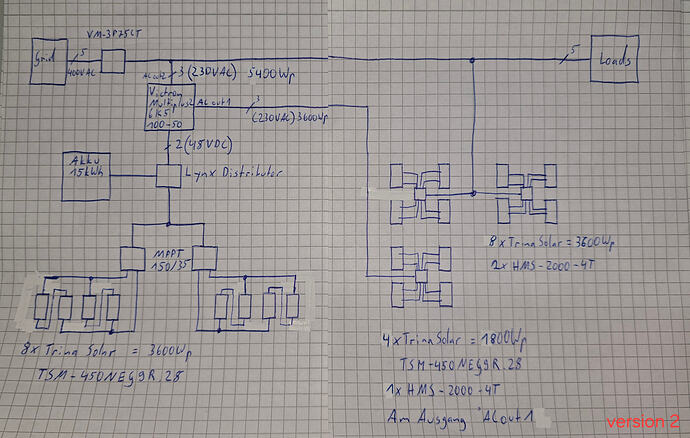 VM-3P75CT
Grid
5
400VAC
ACout2
3 (230VAC) 5400Wp
5
Loads
Victron
Multiplus2
6k5
100-50
ACout1
3
(230VAC) 3600Wp
2 (48VDC)
Akku
15kWh
Lynx Distributor
MPPT
150/35
8x Trina Solar = 3600Wp
TSM-450NEG9R.28
8xTrinaSolar = 3600Wp
2x HMS-2000-4T
4xTrinaSolar = 1800Wp
TSM-450NEG9R.28
1x HMS-2000-4T
Am Ausgang ACout1
version 2